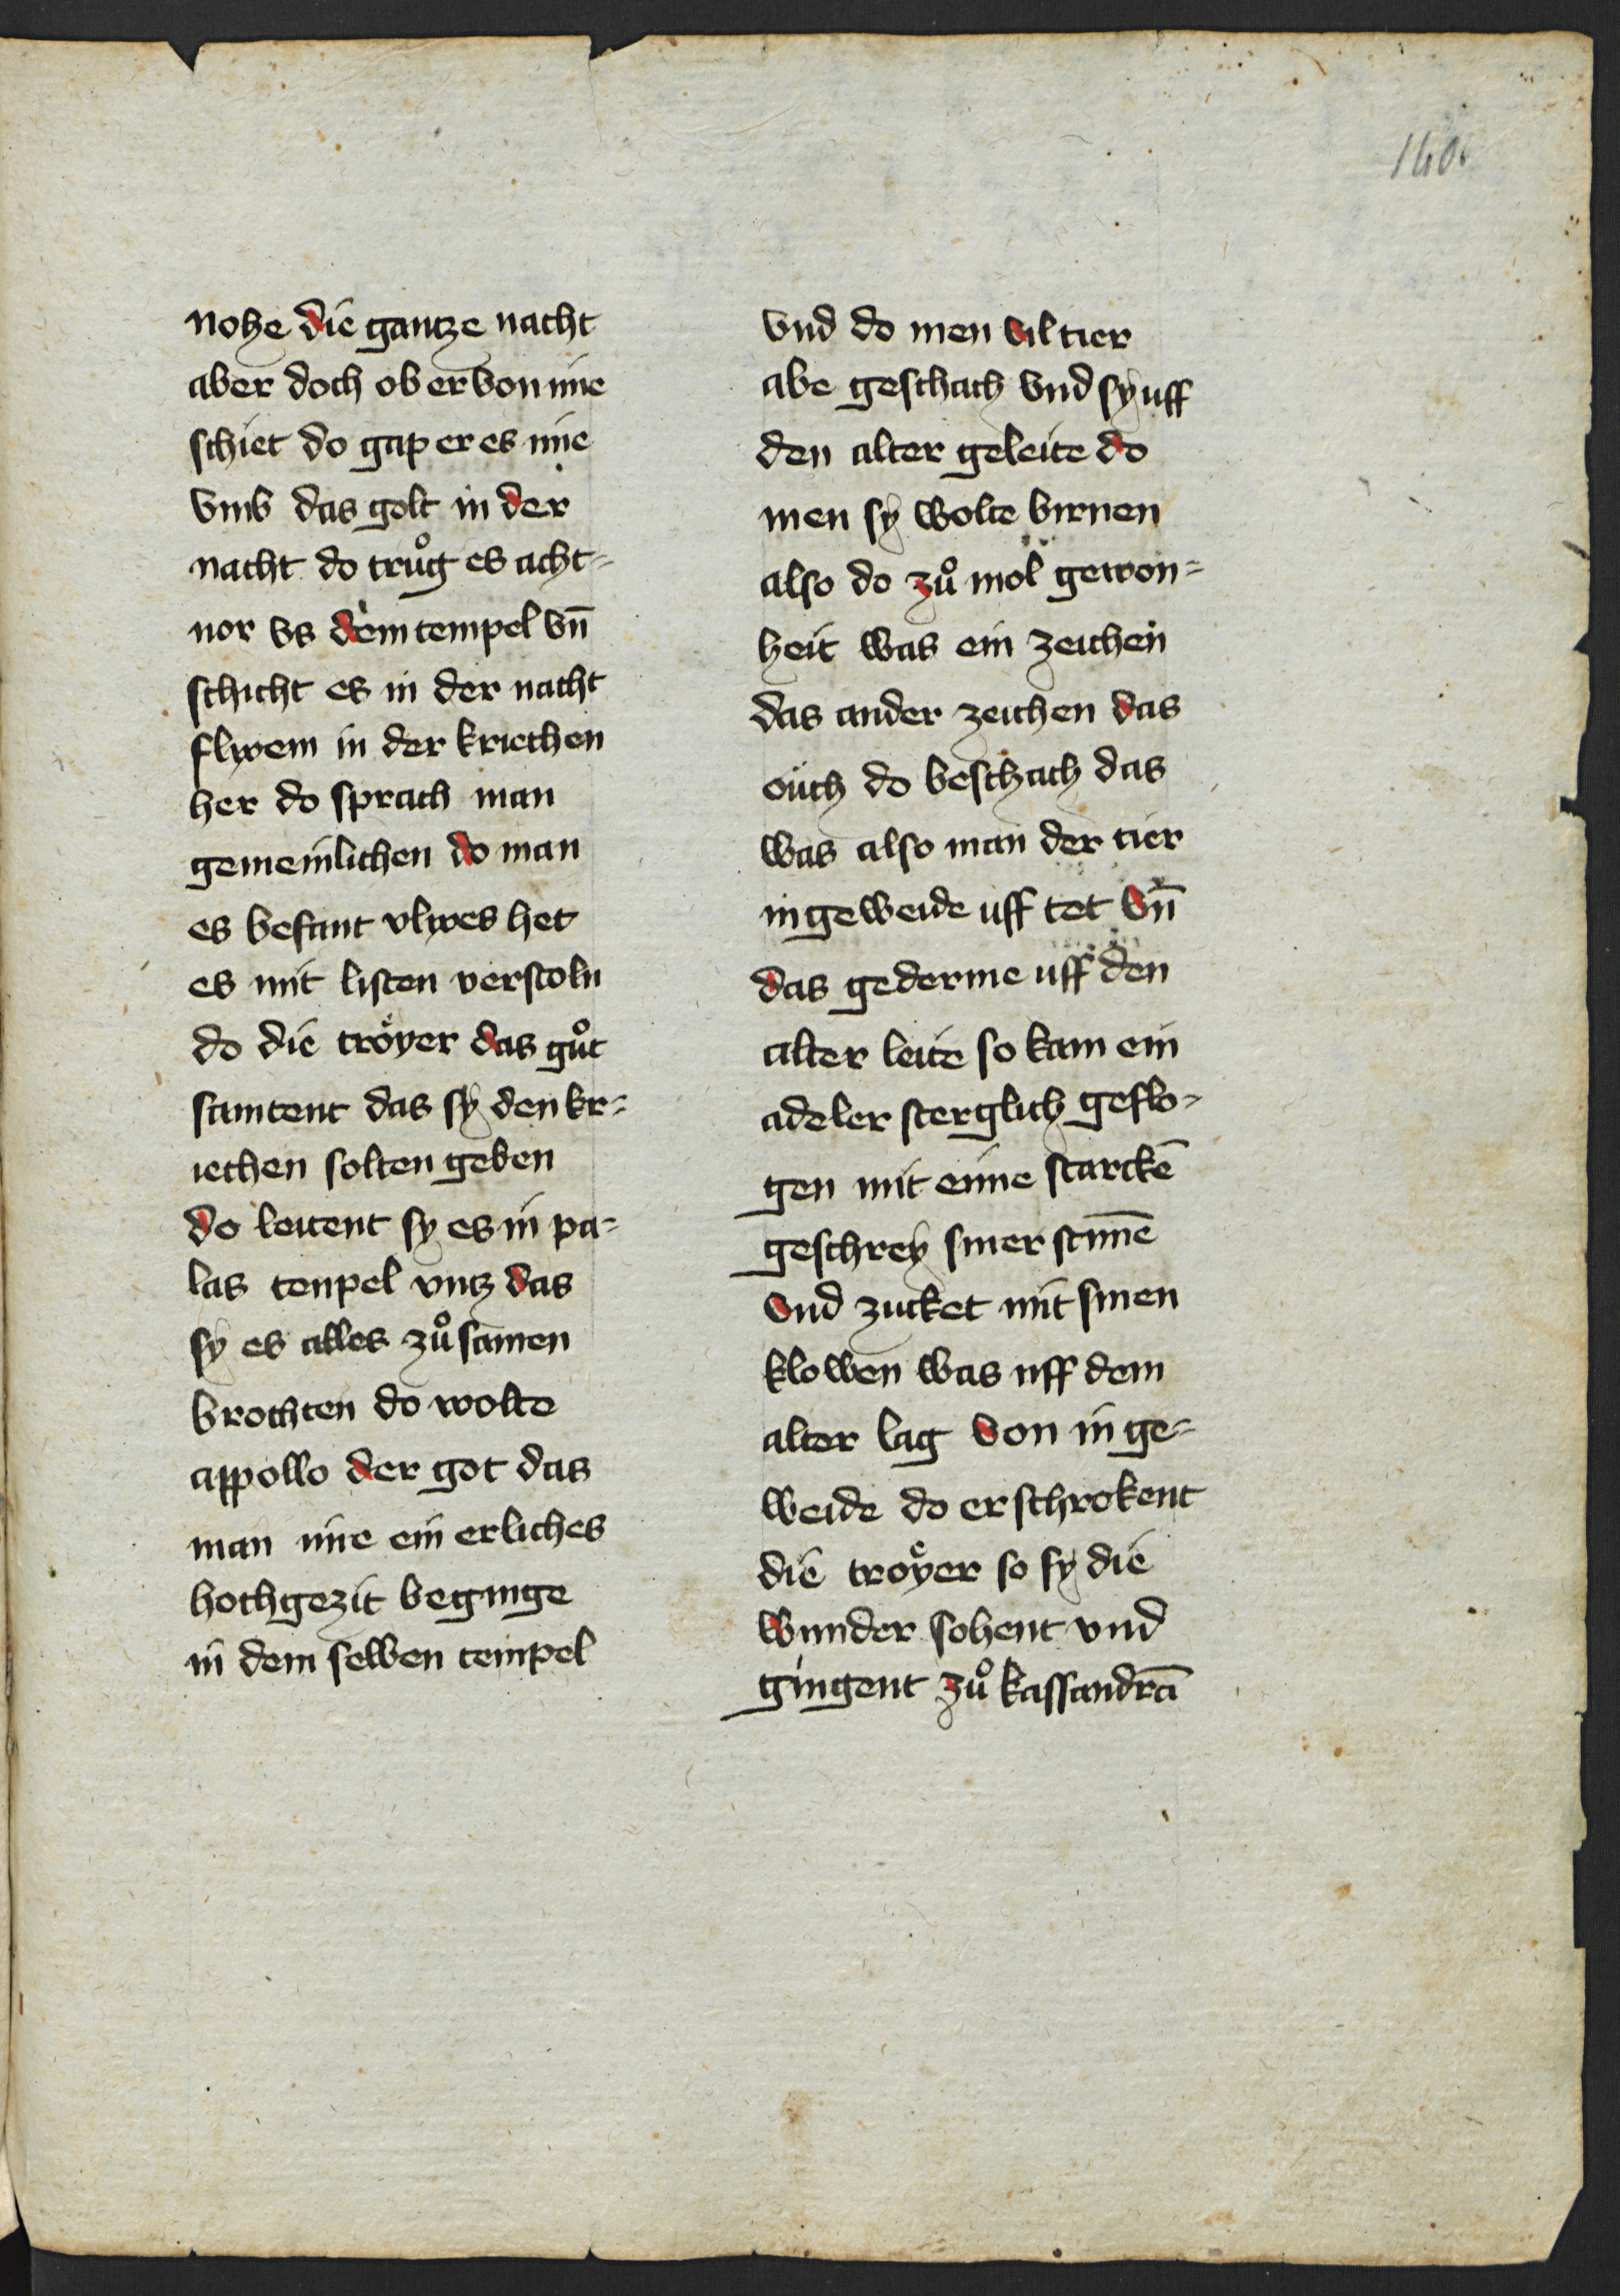 140.
nohe die gantze nacht
aber doch ob er von ime
schiet do gap er es ime
vmb das golt in der
nacht do truͦg es acht⸗
nor vs dem tempel vn̄
schicht es in der nacht
flyxem in der kriechen
her do sprach man
gemeinlichen do man
es befant vlyxes het
es mit listen verstoln
do die troͤyer das guͦt
samtent das sy den kr⸗
iechen solten geben
do leitent sy es in pa⸗
las tenpel vntz das
sy es alles zuͦ samen
brochten do wolte
appollo der got das
man ime ein erliches
hochgezit beginge
in dem selben tempel
vnd do men vil tier
abe geschach vnd sy uff
den alter geleite do
men sy wolte birnen
also do zuͦ mol gewon⸗
heit was ein zeichen
das ander zeichen das
ouch do beschach das
was also man der tier
ingeweide uff tet vn̄
das gederme uff den
alter leite so kam ein
adeler sterglich geflo⸗
gen mit eime starckē
geschrey siner stim̄e
vnd zucket mit sinen
klowen was uff dem
alter lag von in ge⸗
weide do erschrokent
die troͤyer so sy die
wunder sohent vnd
gingent zuͦ kassandrā